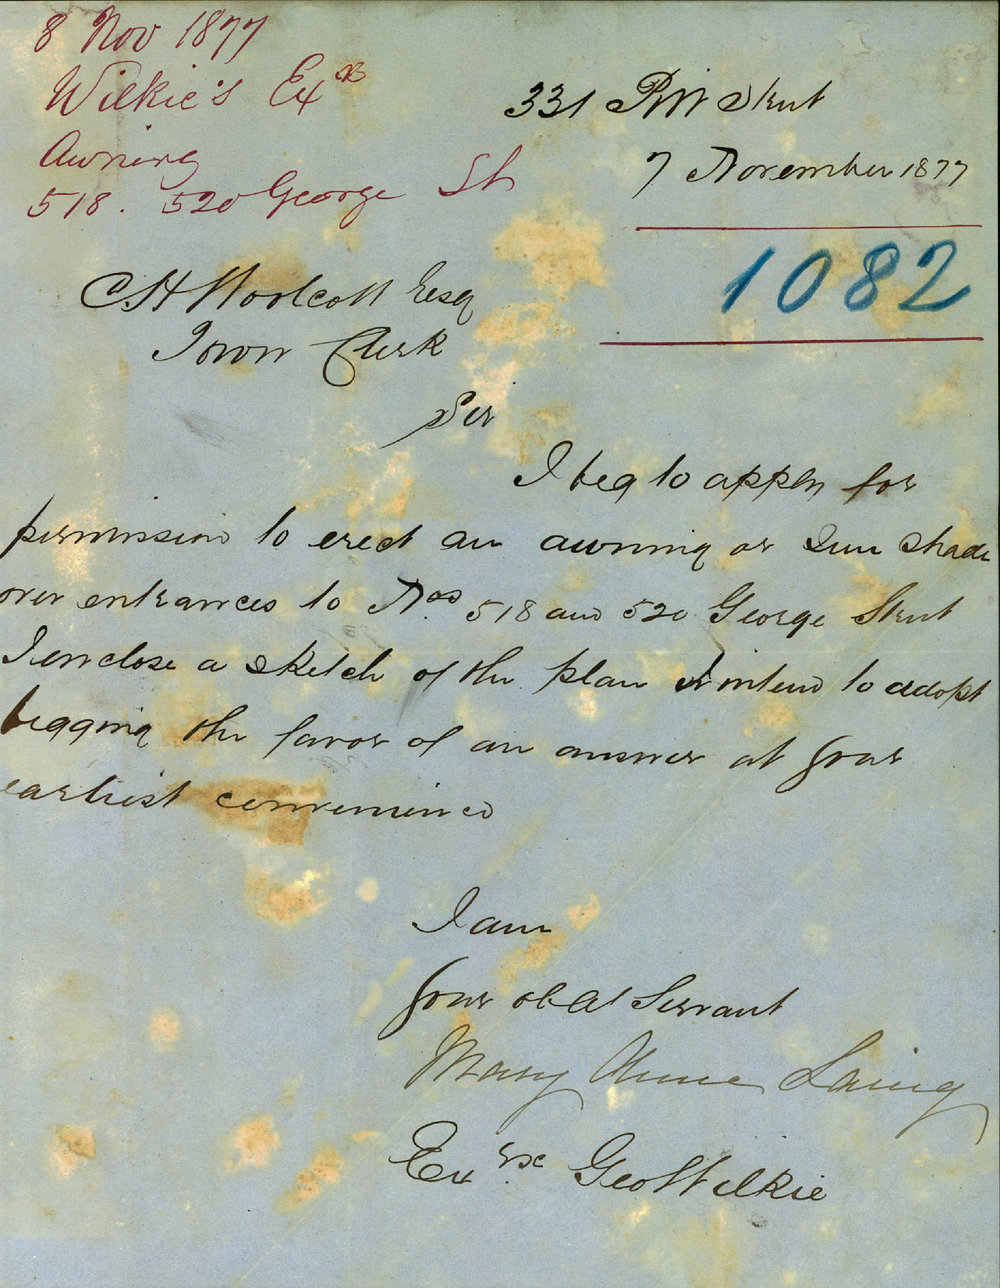 8 Nov 1877
Wilkie's Exx
Awning
518. 520 George St
331 Pitt Street
7 November 1877
1082
C H Woolcott Esq
Town Clerk
Sir
I beg to apply for
permission to erect an awning or Sun shade
over entrances to Nos 518 and 520 George Street
I enclose a sketch of the plan I intend to adopt
begging the favor of an answer at your
earliest convenience
I am
Your obdt Servant
Mary Anne Laing
Exrx Geo Wilkie